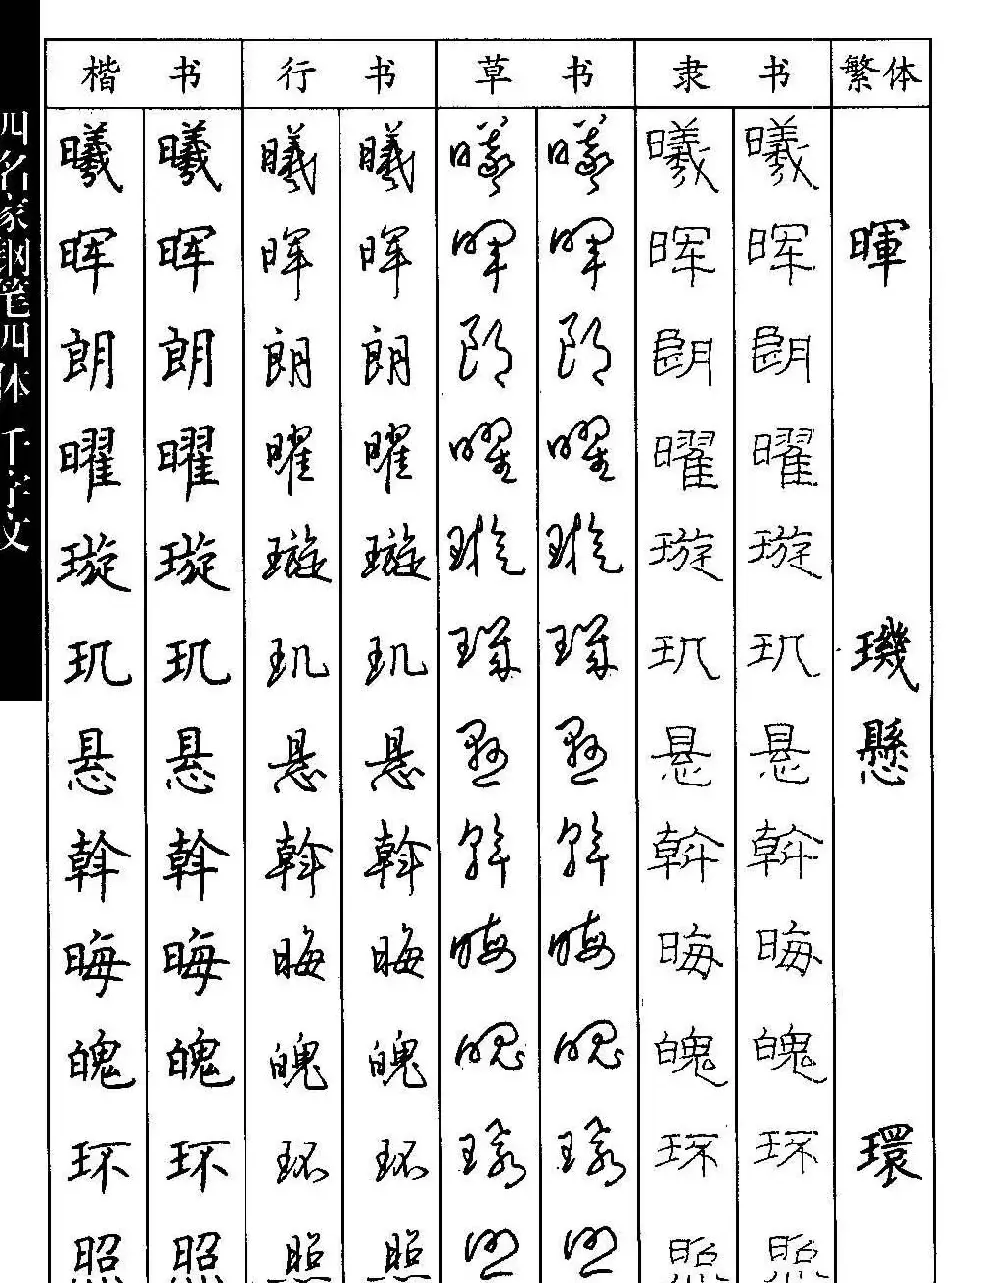 四名家钢笔四体 千字文
楷书 行书 草书 隶书 繁体
曦 曦 曦 曦 曦 曦 曦 曦
晖 晖 晖 晖 晖 晖 晖 晖 暉
朗 朗 朗 朗 朗 朗 朗 朗
曜 曜 曜 曜 曜 曜 曜 曜
璇 璇 璇 璇 璇 璇 璇 璇
玑 玑 玑 玑 璣 璣 玑 玑 璣
悬 悬 悬 悬 懸 懸 悬 悬 懸
斡 斡 斡 斡 斡 斡 斡 斡
晦 晦 晦 晦 晦 晦 晦 晦
魄 魄 魄 魄 魄 魄 魄 魄
环 环 环 环 環 環 环 环 環
照 照 照 照 照 照 照 照